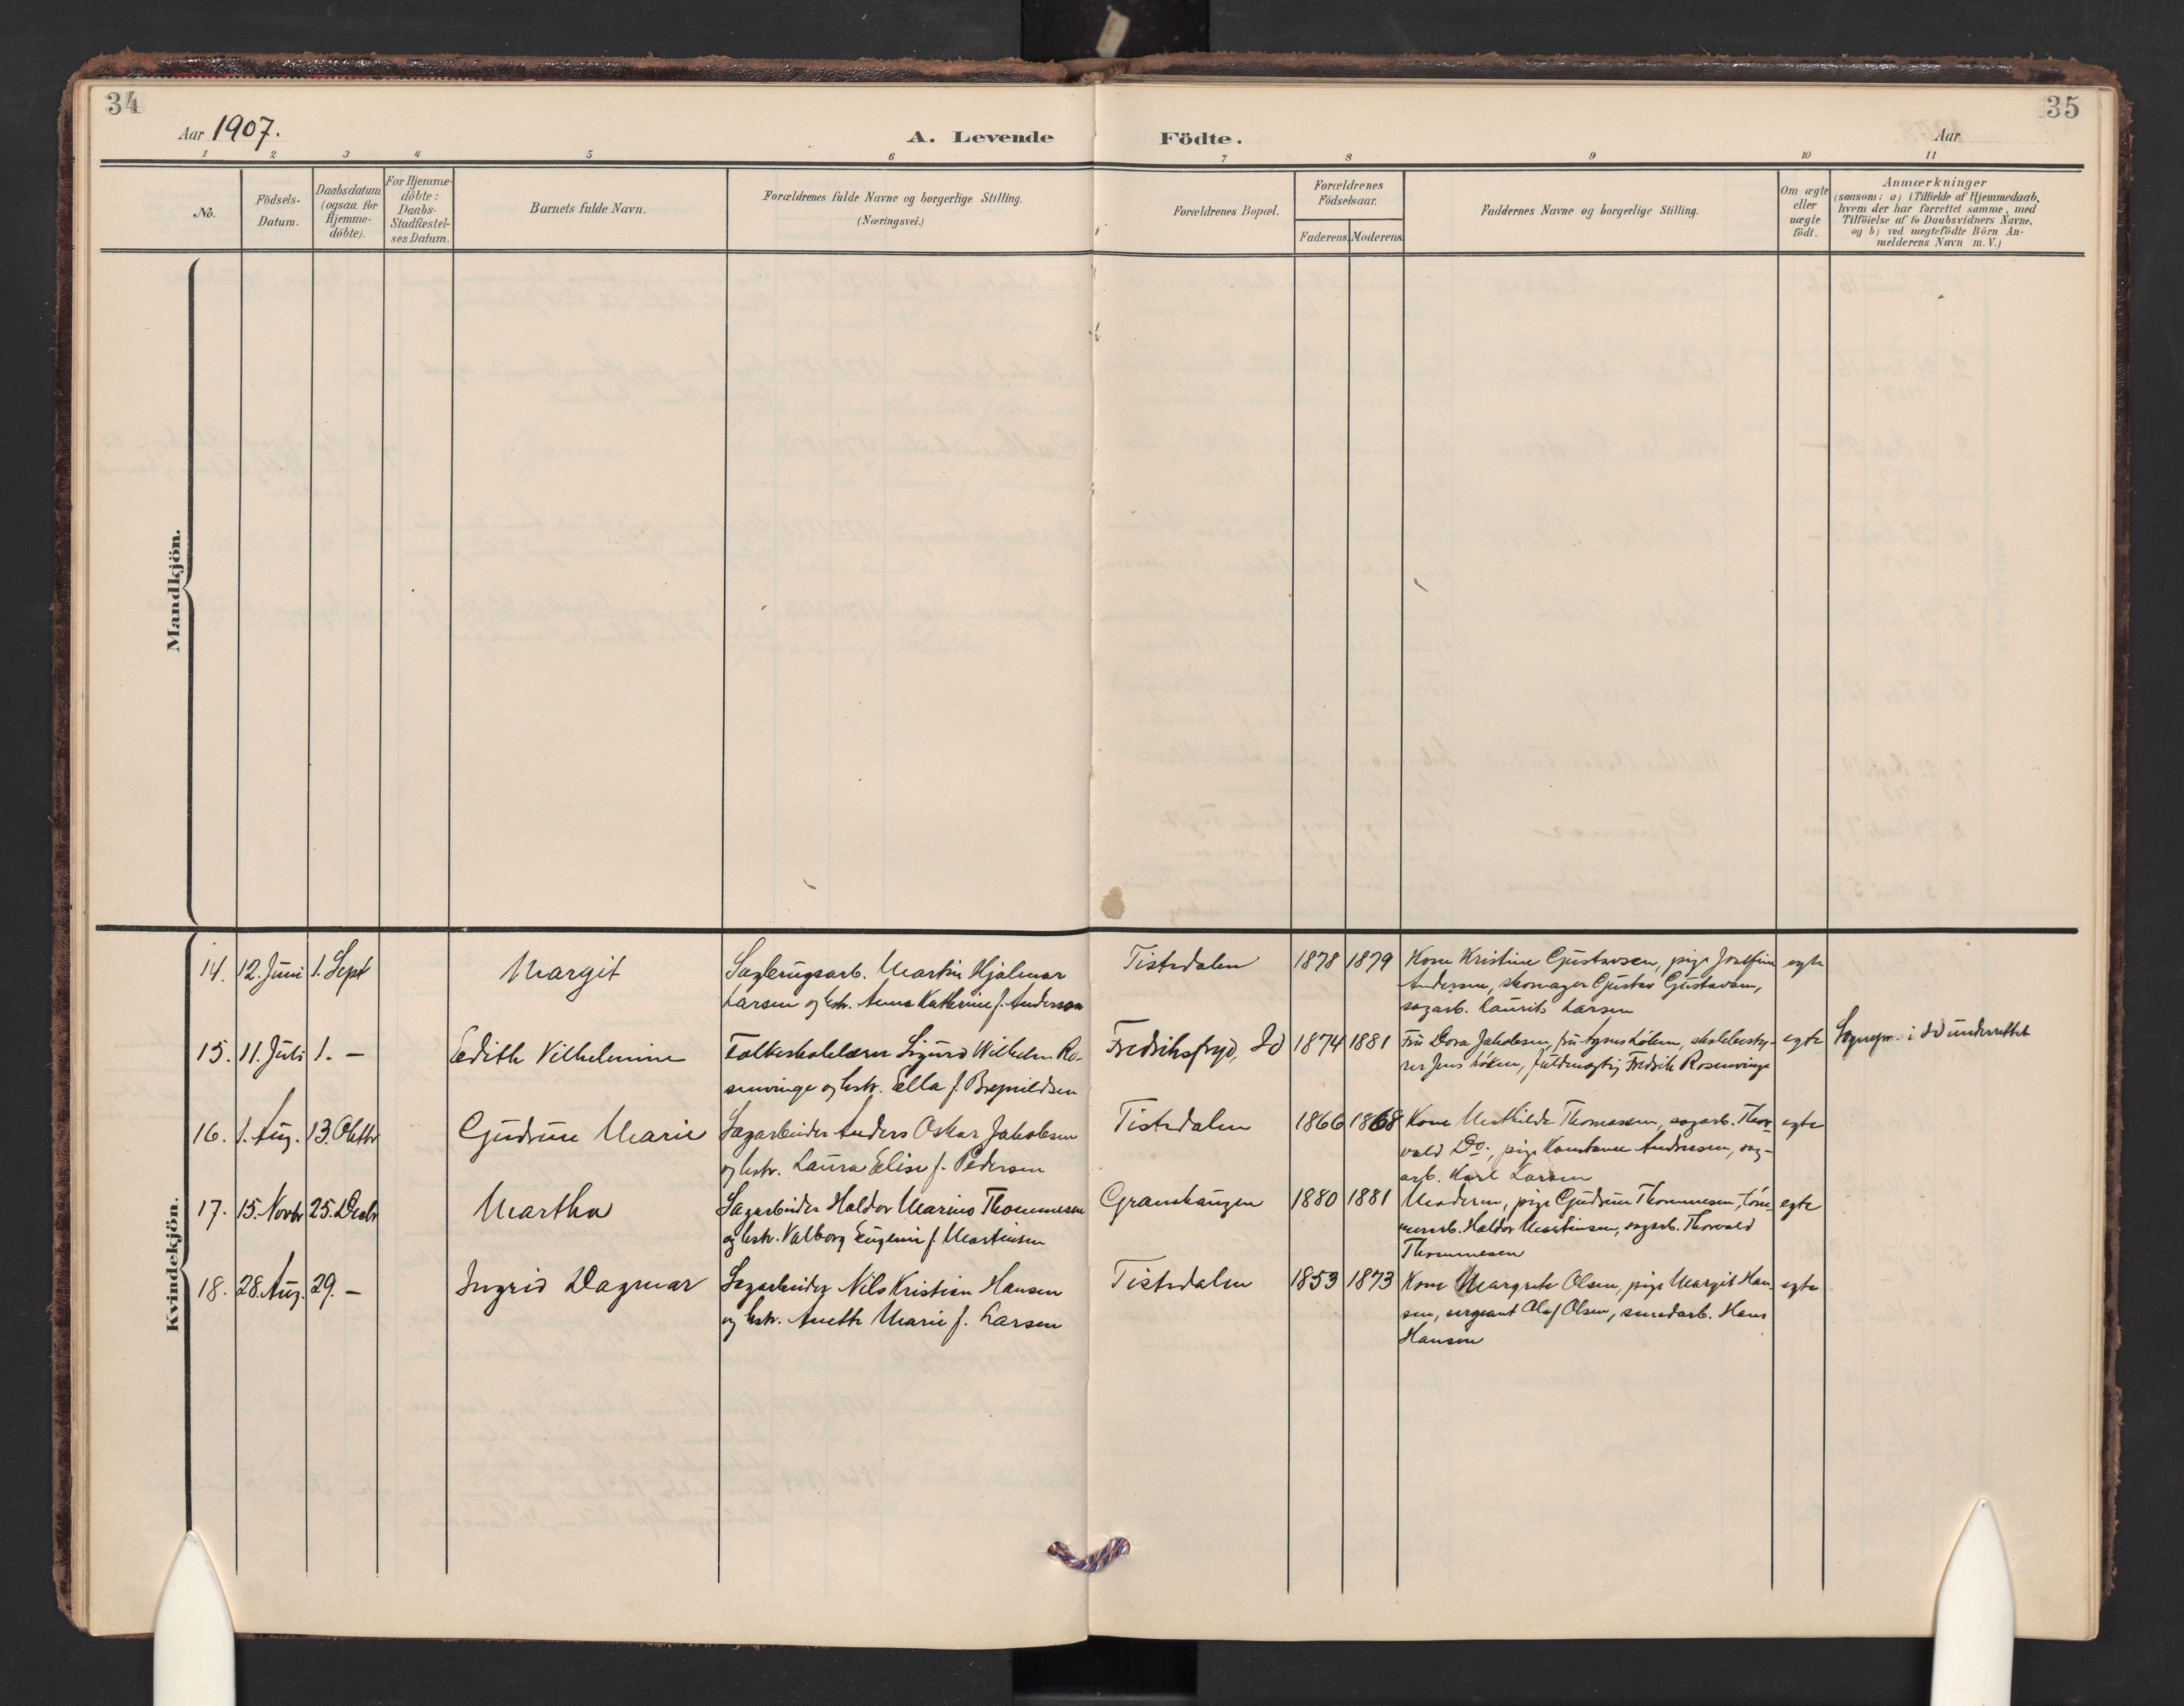 34
35
Aar 1907.
A. Levende
Födte.
Aar
1 2 3 4 5 6 7 8 9 10 11
No.
Födsels-
Datum.
Daabsdatum
(ogsaa for
Hjemme-
döbte).
For Hjemme-
döbte:
Daabs-
Stadfæstel-
ses Datum.
Barnets fulde Navn.
Forældrenes fulde Navne og borgerlige Stilling.
(Næringsvei.)
Forældrenes Bopæl.
Forældrenes
Födselsaar.
Faderens. Moderens.
Faddernes Navne og borgerlige Stilling.
Om ægte
eller
uægte
födt.
Anmærkninger
(saasom: a) i Tilfælde af Hjemmedaab,
hvem der har forrettet samme, med
Tilföielse af to Daabsvidners Navne,
og b) ved uægtefödte Börn An-
melderens Navn m. V.)
Mandkjön.
Kvindekjön.
14. 12. Juni 1. Sept
Margit
Sagbrugsarb. Martin Hjalmar
Larsen og hstr. Anna Katherine f. Andersen
Tistedalen
1878 1879
Kone Kristine Gustavsen, pige Josefine
Andersen, skomager Gustav Gustavsen,
sagarb. Laurits Larsen
egte
15. 11. Juli 1. –
Edith Vilhelmine
Folkeskolelærer Sigurd Wilhelm Ro-
senvinge og hstr. Ella f. Bremildsen
Fredriksfryd, Id
1874 1881
Fru Dora Jakobsen, fru Agnes Löken, skolebesty-
rer Jens Löken, fuldmægtig Fredrik Rosenvinge
egte
Sognepr. i Id underrettet
16. 1. Aug. 13. Oktbr
Gudrun Marie
Sagarbeider Anders Oskar Jakobsen
og hstr. Laura Elise f. Pedersen
Tistedalen
1866 1868
Kone Mathilde Thomassen, sagarb. Thor-
vald Do., pige Konstanse Andreasen, sag-
arb. Karl Larsen
egte
17. 15. Novbr 25. Decbr
Martha
Sagarbeider Haldor Marino Thommesen
og hstr. Valborg Eugenie f. Martinsen
Granshaugen
1880 1881
Moderen, pige Gudrun Thommesen, töm-
merarb. Haldor Martinsen, sagarb. Thorvald
Thommesen
egte
18. 28. Aug. 29. –
Ingrid Dagmar
Sagarbeider Nils Kristian Hansen
og hstr. Anette Marie f. Larsen
Tistedalen
1853 1873
Kone Margrete Olsen, pige Margit Han-
sen, sergeant Olaf Olsen, Hans
Hansen
egte